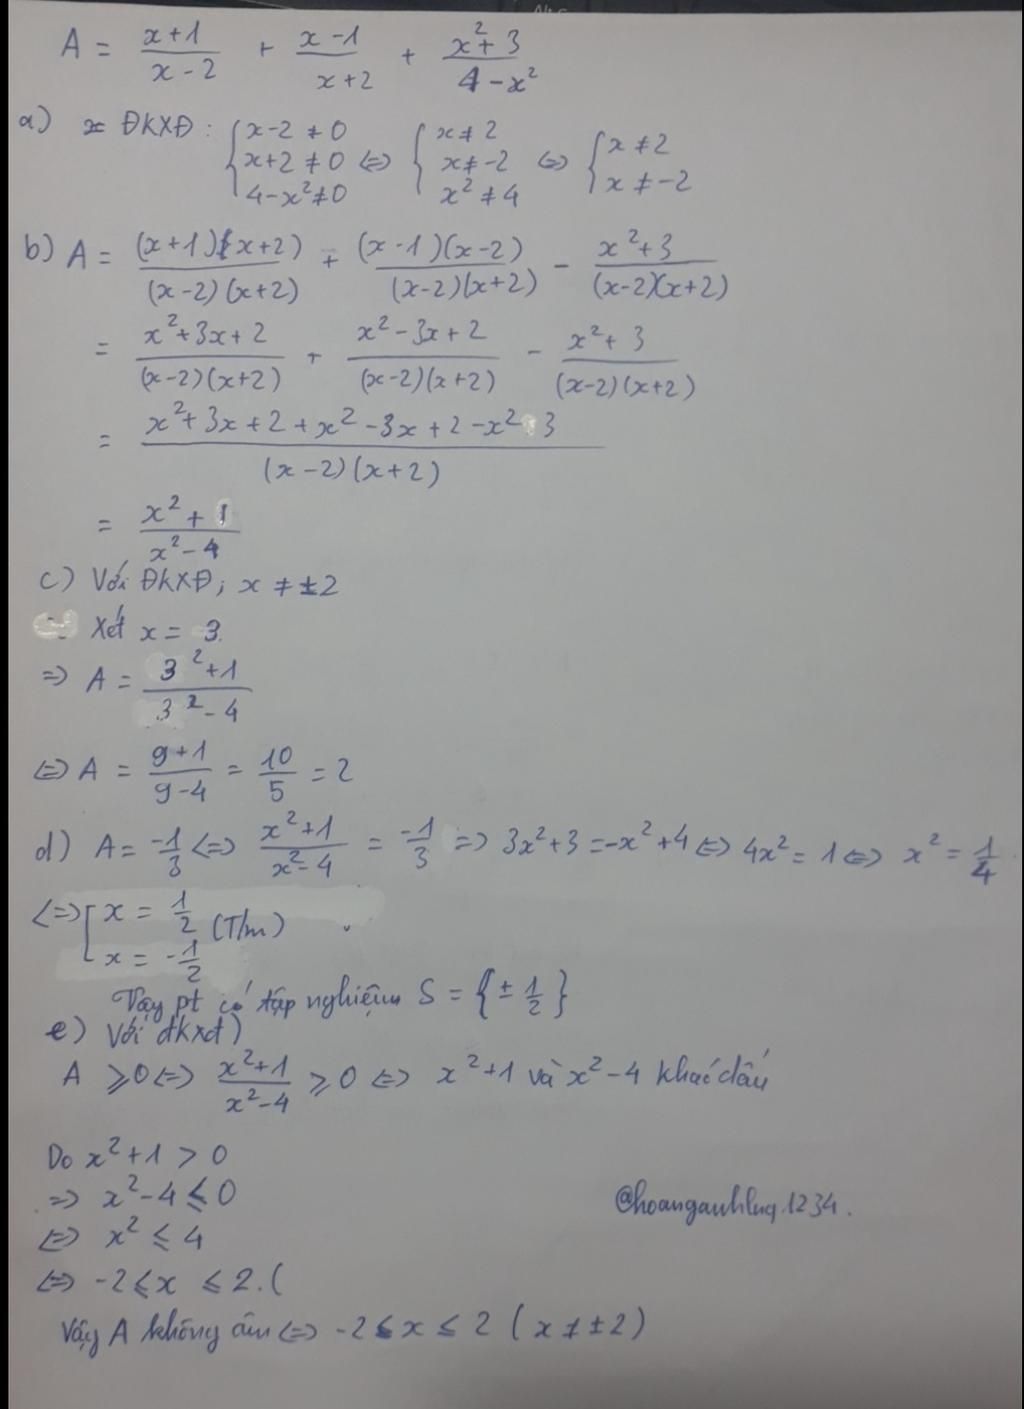 A = \frac{x+1}{x-2} + \frac{x-1}{x+2} + \frac{x^2+3}{4-x^2}
a) x ĐKXĐ: { x-2 ≠ 0; x+2 ≠ 0; 4-x^2 ≠ 0 ⇔ { x ≠ 2; x ≠ -2; x^2 ≠ 4 ⇔ { x ≠ 2; x ≠ -2
b) A = \frac{(x+1)(x+2)}{(x-2)(x+2)} + \frac{(x-1)(x-2)}{(x-2)(x+2)} - \frac{x^2+3}{(x-2)(x+2)}
= \frac{x^2+3x+2}{(x-2)(x+2)} + \frac{x^2-3x+2}{(x-2)(x+2)} - \frac{x^2+3}{(x-2)(x+2)}
= \frac{x^2+3x+2+x^2-3x+2-x^2 3}{(x-2)(x+2)}
= \frac{x^2+1}{x^2-4}
c) Với ĐKXĐ; x ≠ ±2
Xét x = 3.
⇒ A = \frac{3^2+1}{3^2-4}
⇔ A = \frac{9+1}{9-4} = \frac{10}{5} = 2
d) A = \frac{-1}{3} ⇔ \frac{x^2+1}{x^2-4} = \frac{-1}{3} ⇒ 3x^2+3 = -x^2+4 ⇔ 4x^2 = 1 ⇔ x^2 = \frac{1}{4}
⇔ [ x = \frac{1}{2}; x = -\frac{1}{2} (T/m)
Vậy pt có tập nghiệm S = {± \frac{1}{2}}
e) Với đkxđ)
A ≥ 0 ⇔ \frac{x^2+1}{x^2-4} ≥ 0 ⇔ x^2+1 và x^2-4 khác dấu
Do x^2+1 > 0
⇒ x^2-4 ≤ 0
⇔ x^2 ≤ 4
⇔ -2 ≤ x ≤ 2. (
Vậy A không âm ⇔ -2 ≤ x ≤ 2 ( x ≠ ±2)